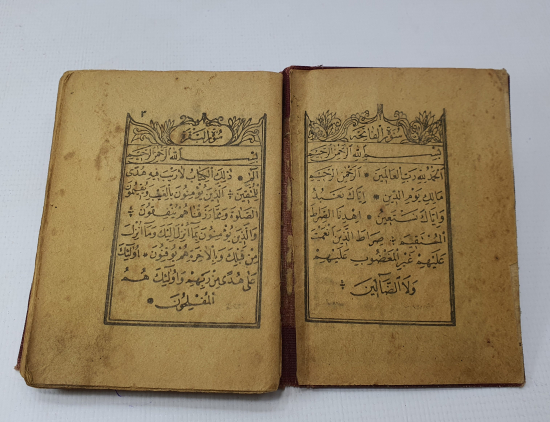 سُورَةُ الْفَاتِحَة
بِسْمِ اللهِ الرَّحْمٰنِ الرَّحِيمِ
اَلْحَمْدُ لِلّٰهِ رَبِّ الْعَالَمِينَ * اَلرَّحْمٰنِ الرَّحِيمِ
مَالِكِ يَوْمِ الدِّينِ * اِيَّاكَ نَعْبُدُ
وَاِيَّاكَ نَسْتَعِينُ * اِهْدِنَا الصِّرَاطَ
الْمُسْتَقِيمَ * صِرَاطَ الَّذِينَ اَنْعَمْتَ
عَلَيْهِمْ غَيْرِ الْمَغْضُوبِ عَلَيْهِمْ
وَلَا الضَّالِّينَ *
٢
سُورَةُ الْبَقَرَة
بِسْمِ اللهِ الرَّحْمٰنِ الرَّحِيمِ
الٓمٓ * ذٰلِكَ الْكِتَابُ لَا رَيْبَ فِيهِ هُدًى
لِلْمُتَّقِينَ * اَلَّذِينَ يُؤْمِنُونَ بِالْغَيْبِ وَيُقِيمُونَ
الصَّلٰوةَ وَمِمَّا رَزَقْنَاهُمْ يُنْفِقُونَ *
وَالَّذِينَ يُؤْمِنُونَ بِمَا اُنْزِلَ اِلَيْكَ وَمَا اُنْزِلَ
مِنْ قَبْلِكَ وَبِالْاٰخِرَةِ هُمْ يُوقِنُونَ * اُولٰئِكَ
عَلٰى هُدًى مِنْ رَبِّهِمْ وَاُولٰئِكَ هُمُ
الْمُفْلِحُونَ *